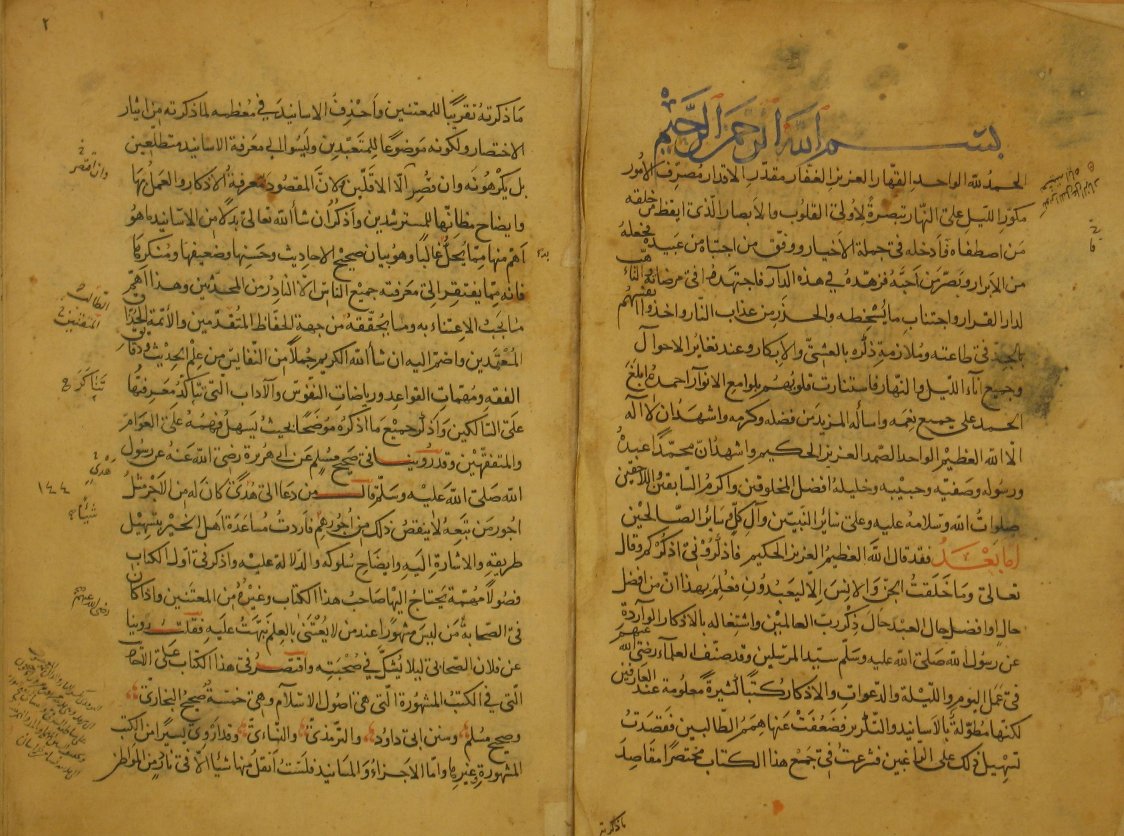 بسم الله الرحمن الرحيم
الحمد لله الواحد القهار العزيز الغفار مقدر الاقدار مصرف الأمور
مكور الليل على النهار تبصرة لأولى القلوب والأبصار الذى ايقظ من خلقه
من اصطفاه فأدخله فى جملة الأخيار ووفق من اجتباه من عبيده فجعله
من الابرار وبصر من أحبه فزهده في هذه الدار فاجتهدوا فى مرضاته والتأهب
لدار القرار واجتناب ما يسخطه والحذر من عذاب النار واخذوا انفسهم
بالجد فى طاعته وملازمة ذكره بالعشي والابكار وعند تغاير الاحوال
وجميع آناء الليل والنهار فاستنارت قلوبهم بلوامع الانوار احمده ابلغ
الحمد على جميع نعمه واسأله المزيد من فضله وكرمه واشهد ان لا اله
الا الله العظيم الواحد الصمد العزيز الحكيم واشهد ان محمدا عبده
ورسوله وصفيه وحبيبه وخليله افضل المخلوقين واكرم السابقين واللاحقين
صلوات الله وسلامه عليه وعلى سائر النبيين وآل كل وسائر الصالحين
اما بعد فقد قال الله العظيم العزيز الحكيم فاذكرونى اذكركم وقال
تعالى وما خلقت الجن والانس الا ليعبدون فعلم بهذا ان من افضل
حال او افضل حال العبد حال ذكرب رب العالمين واشتغاله بالاذكار الواردة
عن رسول الله صلى الله عليه وسلم سيد المرسلين وقد صنف العلماء رضى الله عنهم
فى عمل اليوم والليلة والدعوات والاذكار كتبا كثيرة معلومة عند العارفين
لكنها مطولة بالاسانيد والتكرير فضعفت عنها همم الطالبين فقصدت
تسهيل ذلك على الراغبين فشرعت فى جمع هذا الكتاب مختصرا مقاصد
ما ذكرته
٢
ما ذكرته تقريبا للمعتنين وأحذف الاسانيد فى معظمه لما ذكرته من ايثار
الاختصار ولكونه موضوعا للمتعبدين وليسوا الى معرفة الاسانيد متطلعين
بل يكرهونه وان قصر الا الاقلين ولان المقصود معرفة الاذكار والعمل بها
وايضاح مظانها للمسترشدين واذكر ان شاء الله تعالى بدلا من الاسانيد ما هو
اهم منها مما يخل غالبا وهو بيان صحيح الاحاديث وحسنها وضعيفها ومنكرها
فانه مما يفتقر الى معرفته جميع الناس الا النادر من المحدثين وهذا اهم
ما يجب الاعتناء به وما يحققه من جهة الحفاظ المتقدمين والأئمة الحذاق
المعتمدين واضم اليه ان شاء الله الكريم جملا من النفائس من علم الحديث ودقائق
الفقه ومهمات القواعد ورياضات النفوس والآداب التى تتأكد معرفتها
على السالكين واذكر جميع ما اذكره موضحا بحيث يسهل فهمه على العوام
والمتفقهين وقد روينا فى صحيح مسلم عن ابى هريرة رضى الله عنه عن رسول
الله صلى الله عليه وسلم قال من دعا الى هدى كان له من الاجر مثل
اجور من تبعه لا ينقص ذلك من اجورهم فأردت مساعدة اهل الخير بتسهيل
طريقه والاشارة اليه وايضاح سلوكه والدلالة عليه واذكر فى اول الكتاب
فصولا مهمة يحتاج اليها صاحب هذا الكتاب وغيره من المعتنين واذا كان
فى الصحابة من ليس مشهورا عند من لا يعتنى بالعلم نبهت عليه فقلت روينا
عن فلان الصحابى ليلا يشك في صحبته واقتصر فى هذا الكتاب على الاحاديث
التى في الكتب المشهورة التى هى اصول الاسلام وهى خمسة صحيح البخارى
وصحيح مسلم وسنن ابى داود والترمذى والنسائى وقد اروى يسيرا من الكتب
المشهورة وغيرها واما الاجزاء والمسانيد فلست انقل منها شيئا الا فى نادر من المواطن
وان اقتصر
هدى
١٤٤
شيئا
رضى الله عنهم